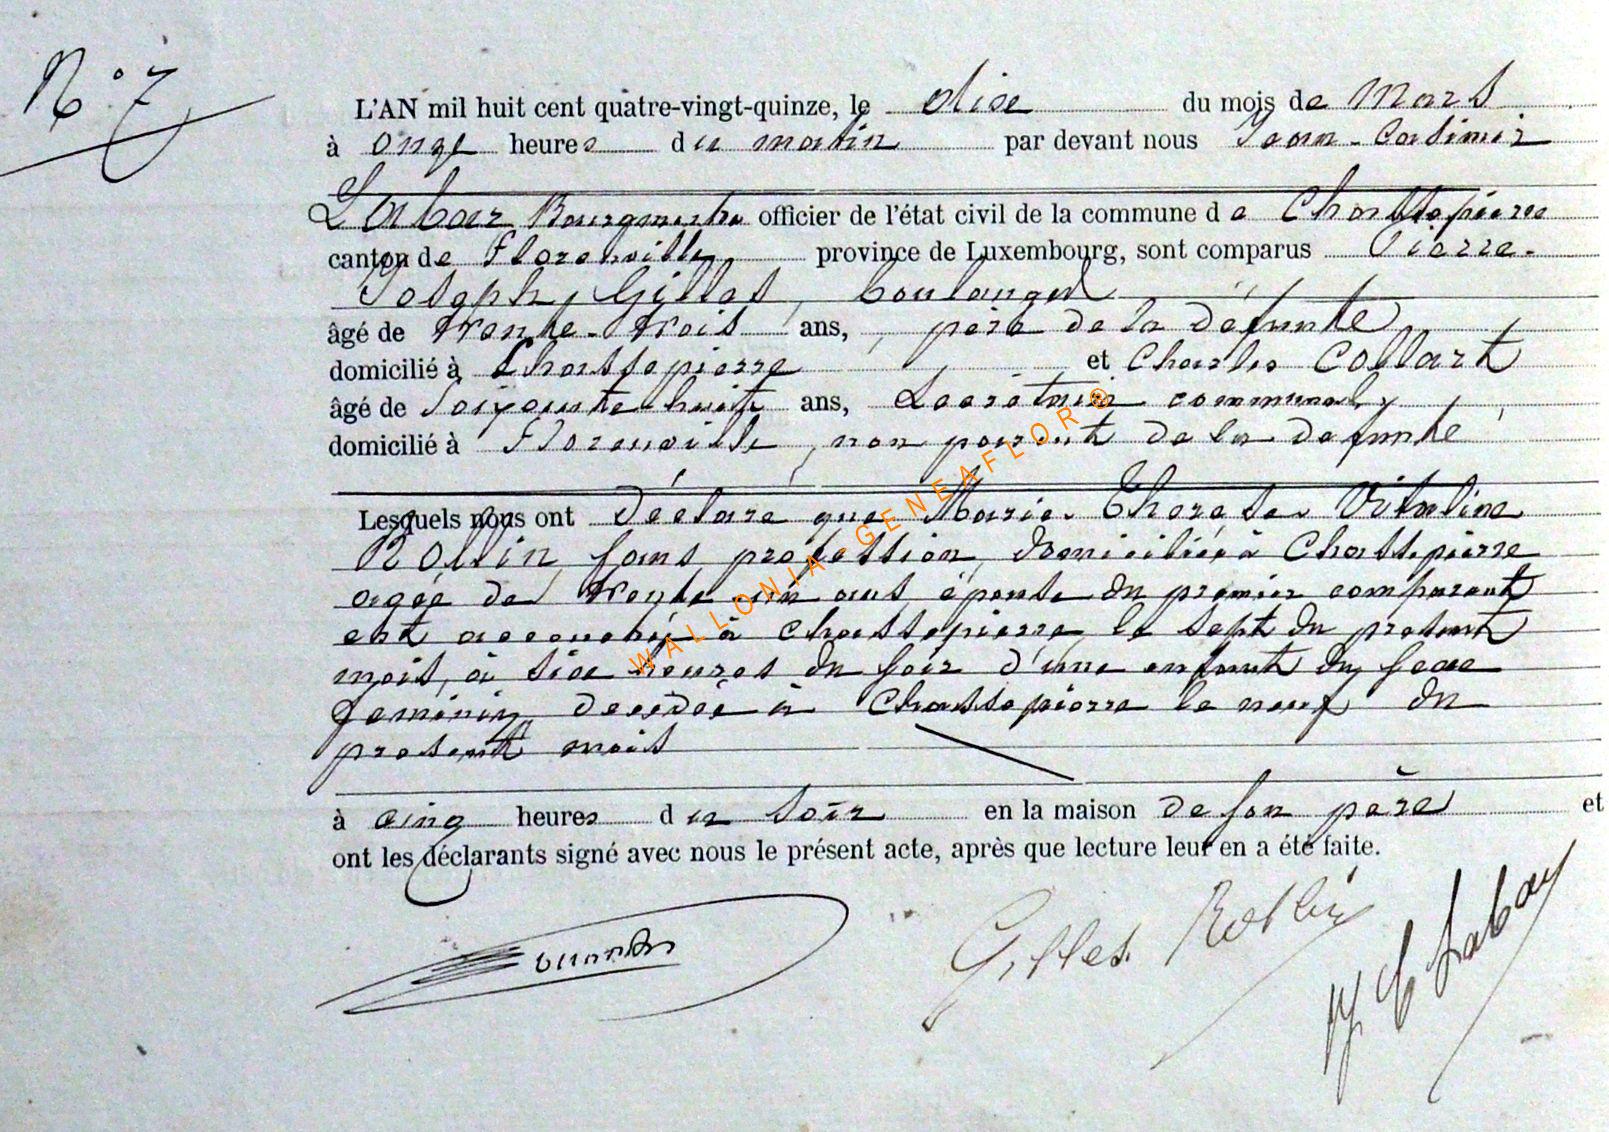 N° 7
L'AN mil huit cent quatre-vingt-quinze, le dise du mois de Mars
à onze heures du matin par devant nous Jean-Casimir
Labar Bourgmestre officier de l'état civil de la commune de Chassepierre
canton de Florenville province de Luxembourg, sont comparus Pierre-
Joseph, Gilles, boulanger
âgé de trente-trois ans, père de la défunte
domicilié à Chassepierre et Charles Collart
âgé de soixante-huit ans, Secrétaire communal,
domicilié à Florenville, non parent de la défunte
Lesquels nous ont déclaré que Marie-Thérèse-Vitaline
Rollin, sans profession, domiciliée à Chassepierre
agée de trente un ans épouse du premier comparant
est accouché à Chassepierre le sept du présent
mois, à six heures du soir d'une enfant du sexe
feminin, décédée à Chassepierre le neuf du
présent mois
à cinq heures du soir en la maison de son père et
ont les déclarants signé avec nous le présent acte, après que lecture leur en a été faite.
Gilles Rollin
J C Labar
WALLONIA-GENEAFLOR®